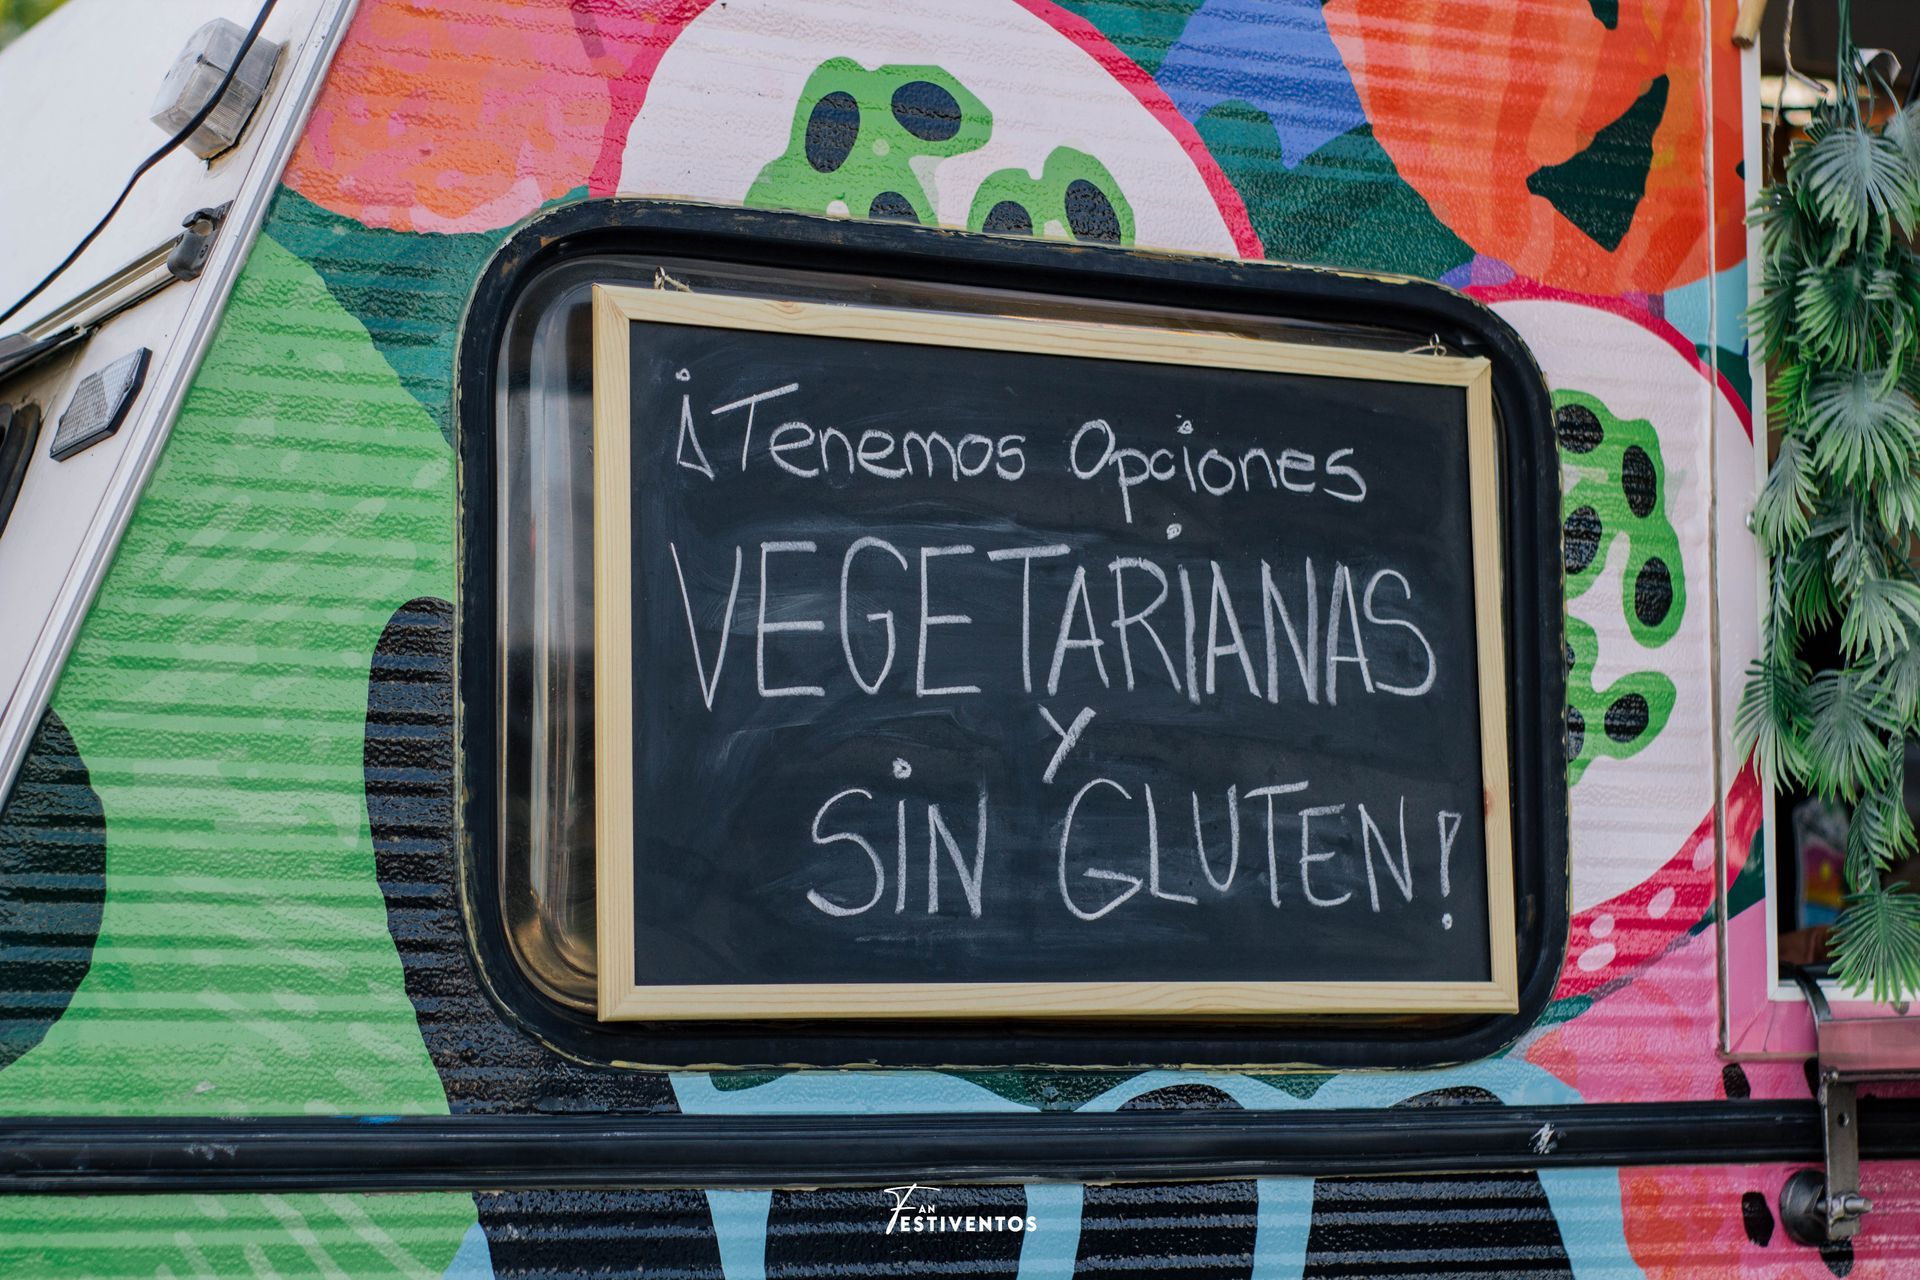 ¡Tenemos Opciones
VEGETARIANAS
Y
SIN GLUTEN!
FAN
FESTIVENTOS